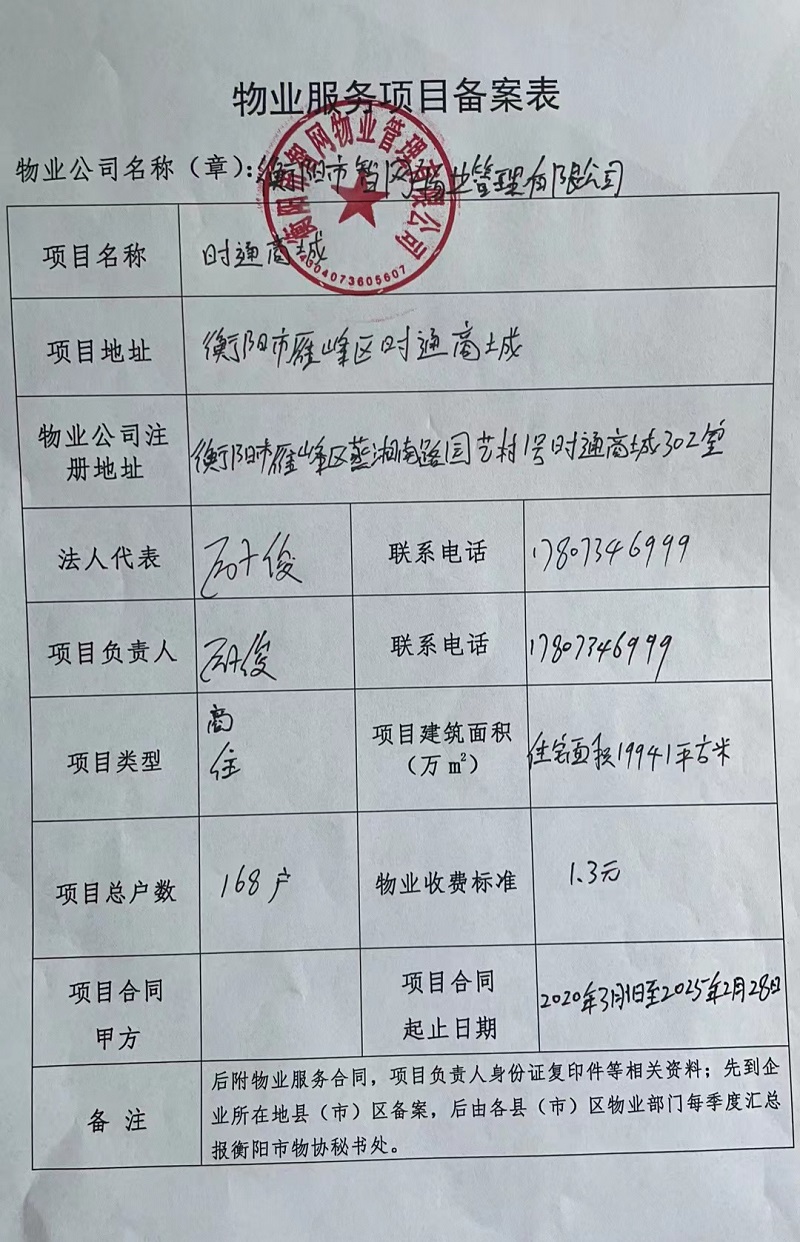 物业服务项目备案表
物业公司名称（章）：衡阳市智网物业管理有限公司
衡阳市智网物业管理有限公司
4304073605607
项目名称 时通商城
项目地址 衡阳市雁峰区时通商城
物业公司注 衡阳市雁峰区蒸湘南路园艺村1号时通商城302室
册地址
法人代表 俊 联系电话 17807346999
项目负责人 俊 联系电话 17807346999
项目类型 商
住
项目建筑面积 住宅面积19941平方米
（万m²）
项目总户数 168户 物业收费标准 1.3元
项目合同
甲方
项目合同 2020年3月1日至2025年2月28日
起止日期
备 注
后附物业服务合同，项目负责人身份证复印件等相关资料；先到企
业所在地县（市）区备案，后由各县（市）区物业部门每季度汇总
报衡阳市物协秘书处。